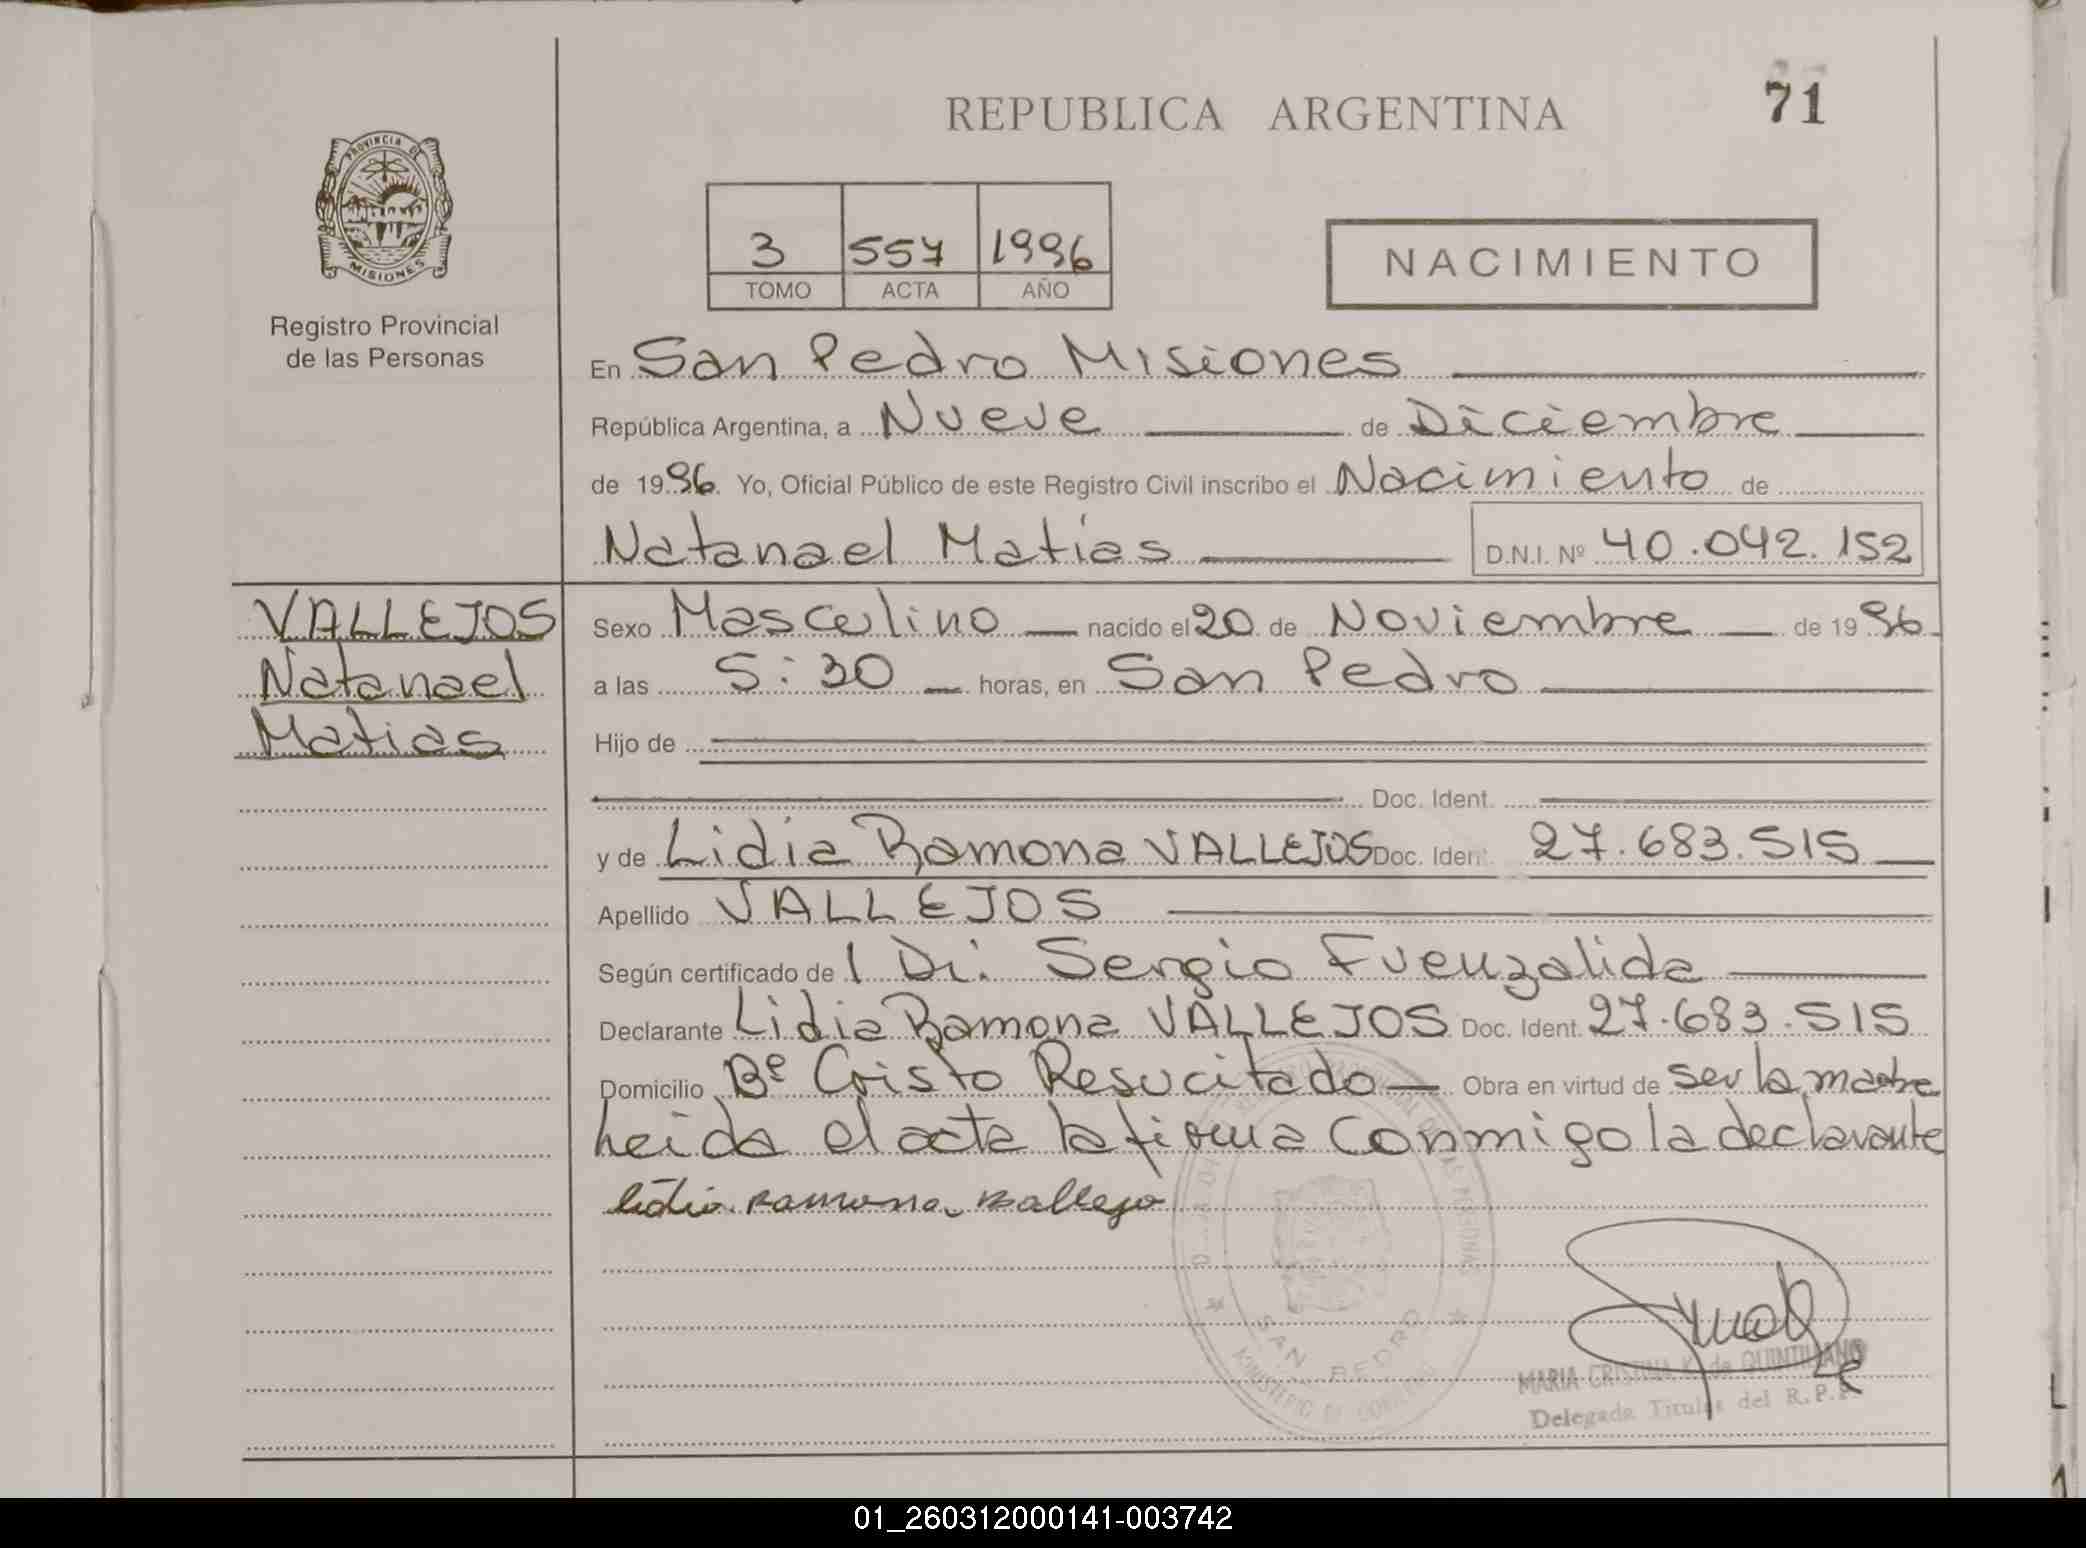 71
REPUBLICA ARGENTINA
PROVINCIA DE
MISIONES
Registro Provincial
de las Personas
3 557 1996
TOMO ACTA AÑO
NACIMIENTO
En San Pedro Misiones
República Argentina, a Nueve de Diciembre
de 1996. Yo, Oficial Público de este Registro Civil inscribo el Nacimiento de
Natanael Matías D.N.I. Nº 40.042.152
VALLEJOS
Natanael
Matias
Sexo Masculino nacido el 20 de Noviembre de 1996
a las 5:30 horas, en San Pedro
Hijo de
Doc. Ident.
y de Lidia Ramona VALLEJOS Doc. Ident 27.683.515
Apellido VALLEJOS
Según certificado de Sergio Fuenzalida
Declarante Lidia Ramona VALLEJOS Doc. Ident. 27.683.515
Domicilio Bº Cristo Resucitado Obra en virtud de ser la madre
Leida el acta la firma Conmigo la declarante
lidia Ramona Ballejo
SAN PEDRO
MARIA CRISTINA K. de QUINTILLANO
Delegada Titular del R.P.P.
01_260312000141-003742